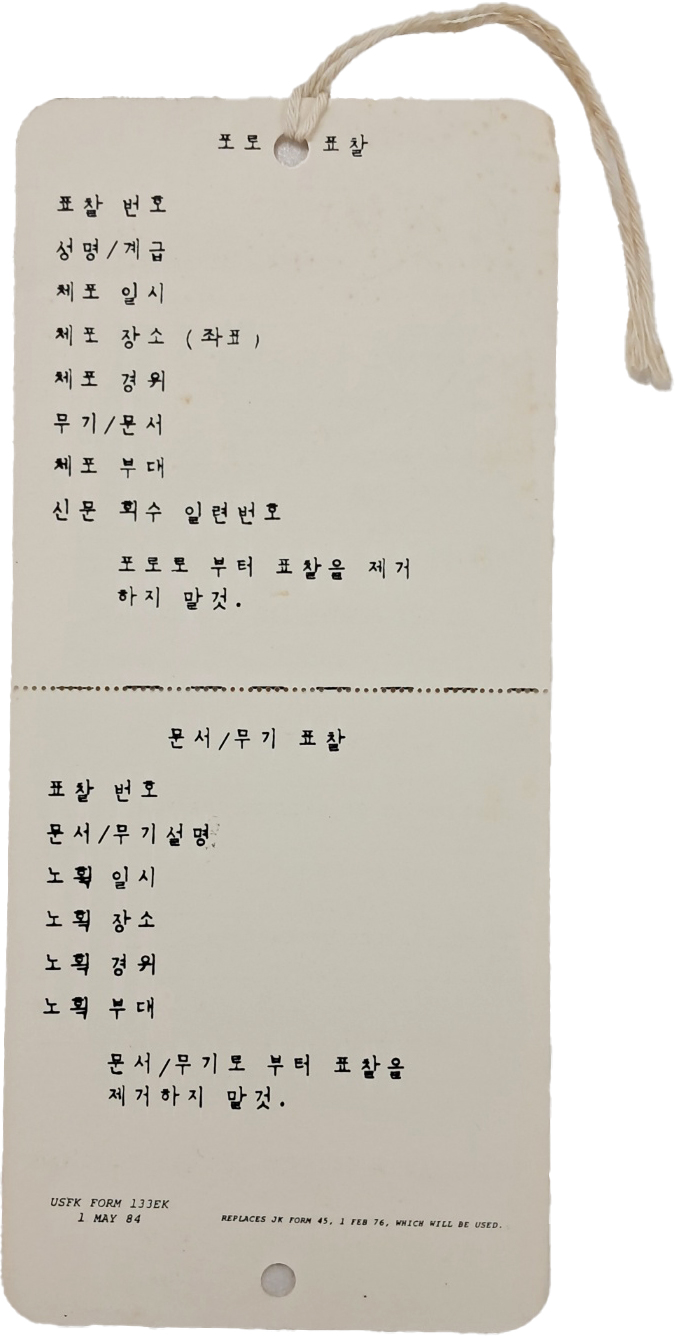 포로 표찰
표찰 번호
성명/계급
체포 일시
체포 장소 (좌표)
체포 경위
무기/문서
체포 부대
신문 회수 일련번호
포로로 부터 표찰을 제거
하지 말것.
문서/무기 표찰
표찰 번호
문서/무기설명
노획 일시
노획 장소
노획 경위
노획 부대
문서/무기로 부터 표찰을
제거하지 말것.
USFK FORM 133EK
1 MAY 84
REPLACES JK FORM 45, 1 FEB 76, WHICH WILL BE USED.